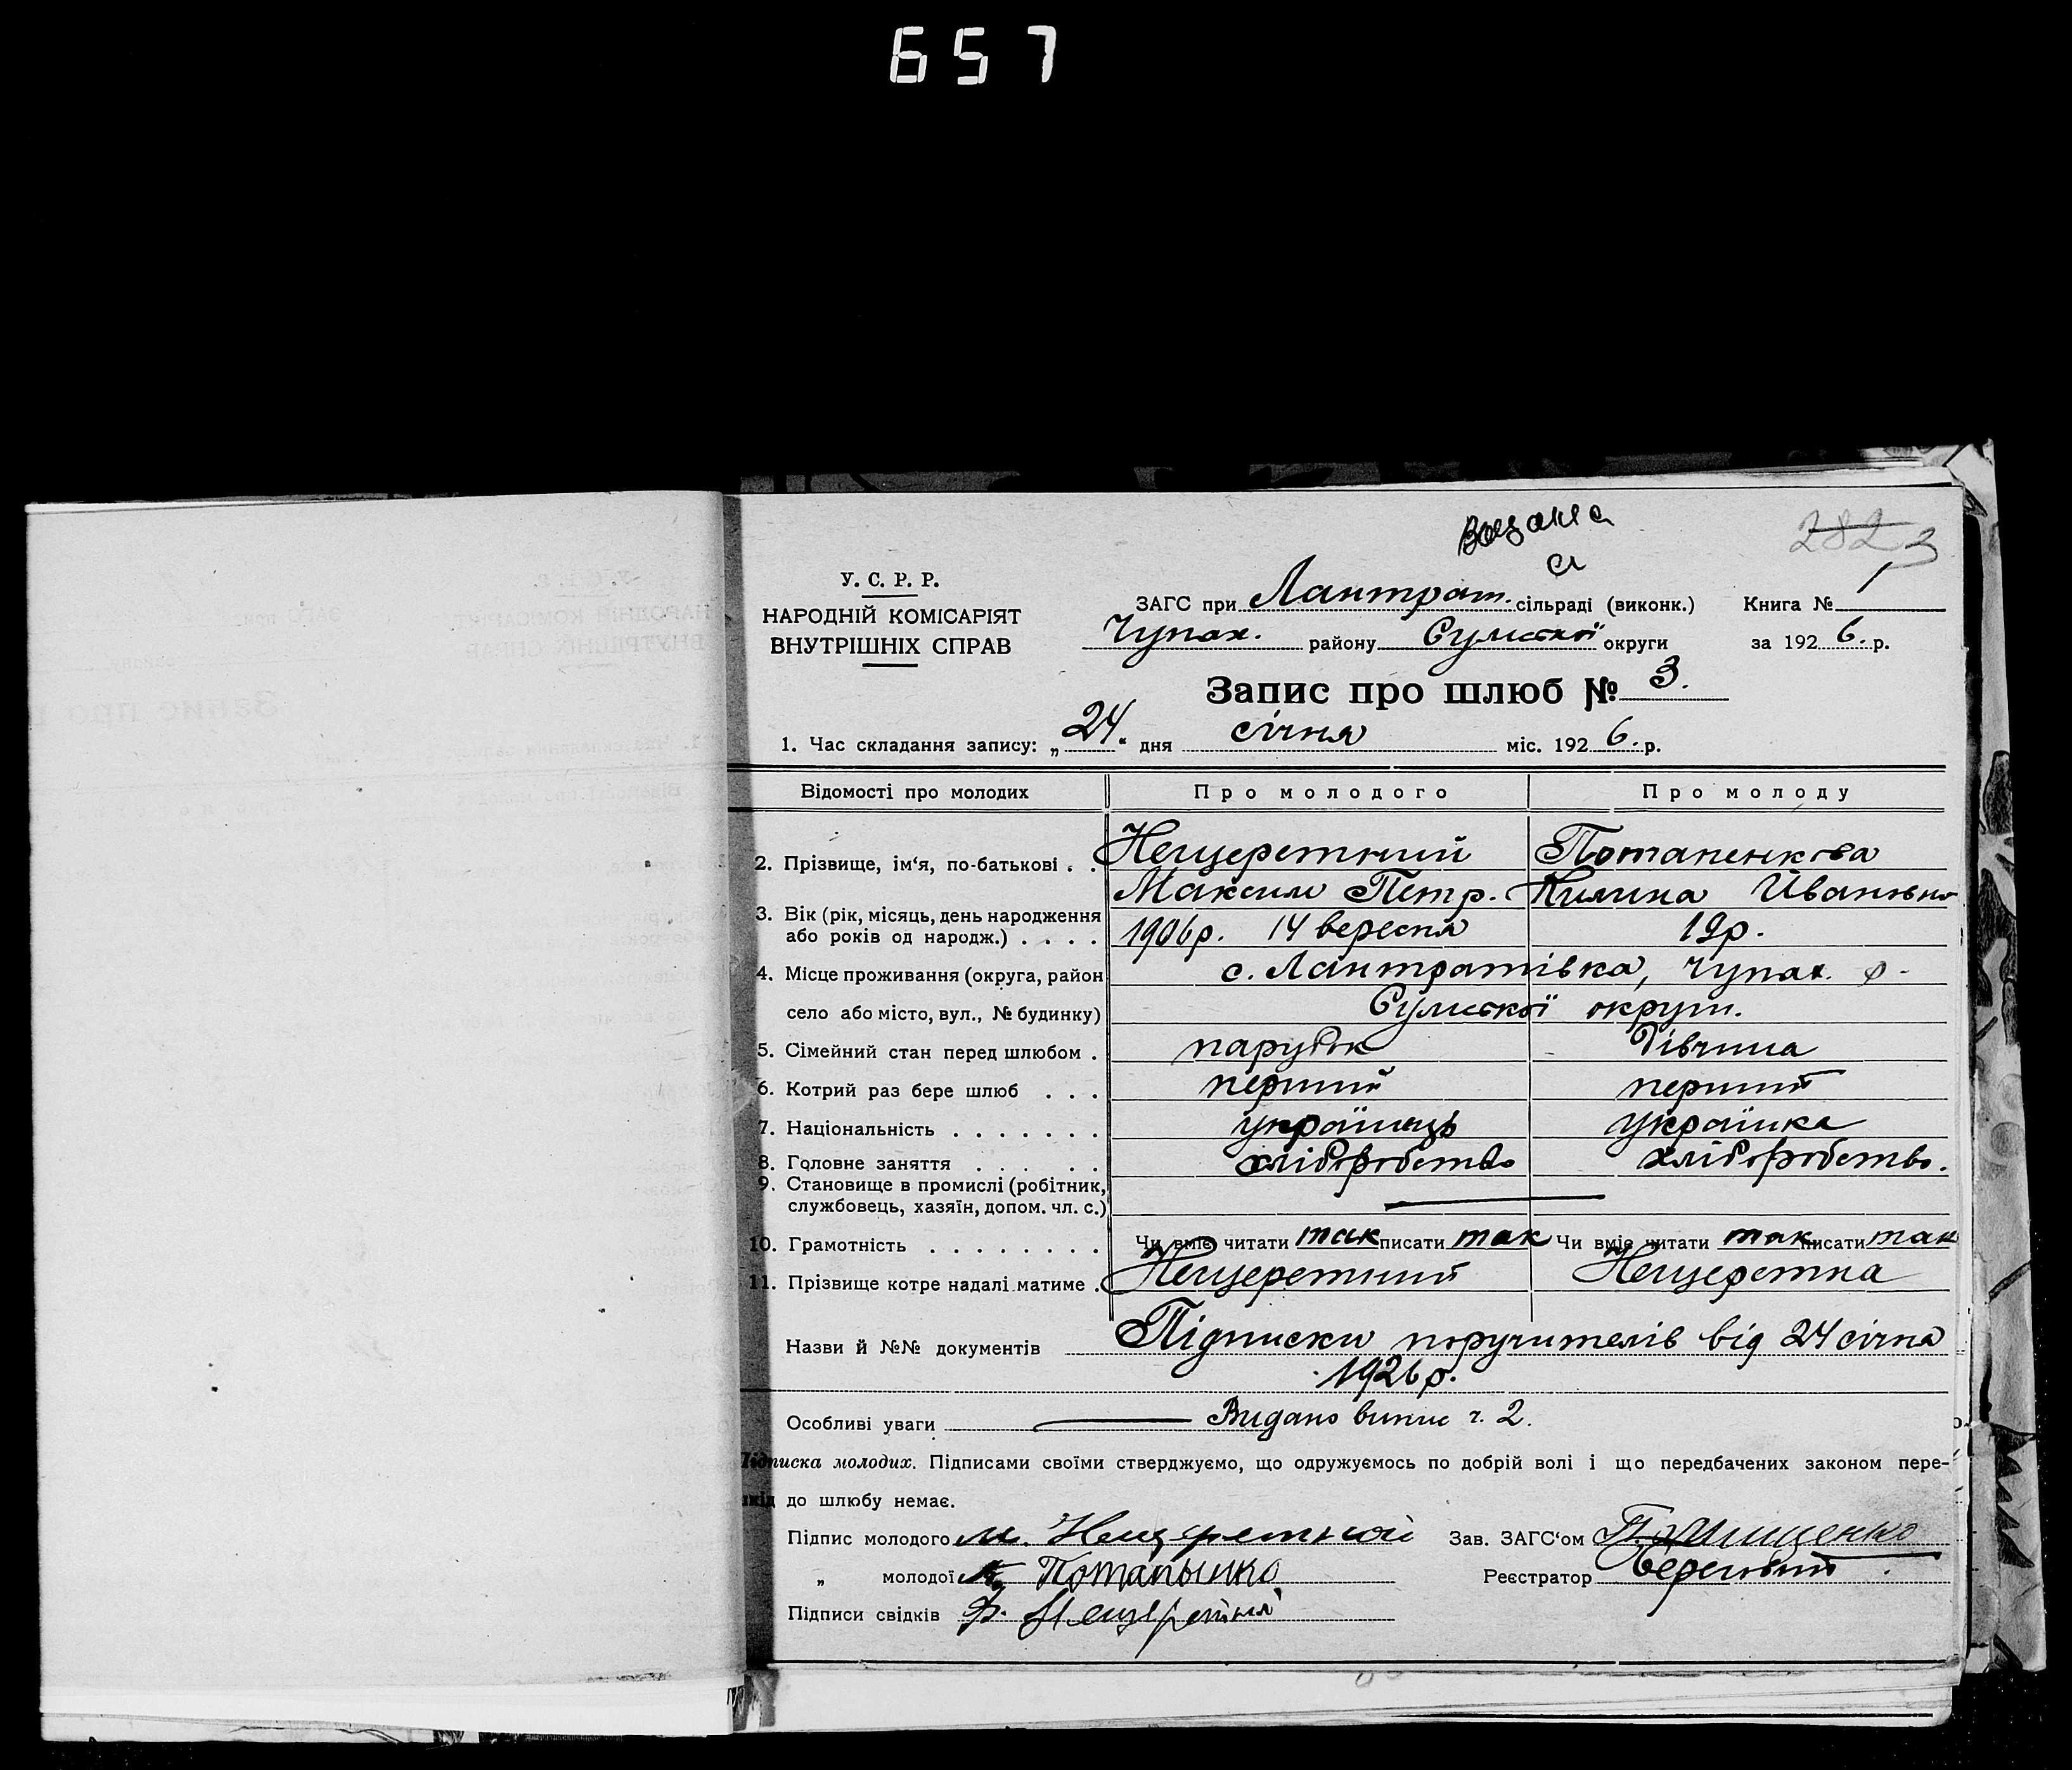 657
282 3
У. С. Р. Р.
НАРОДНІЙ КОМІСАРІЯТ
ВНУТРІШНІХ СПРАВ
ЗАГС при Лантрат. сільраді (виконк.) Книга № 1
Чупах. району Сумської округи за 192 6. р.
Запис про шлюб № 3.
1. Час складання запису: „ 24. “ дня січня міс. 192 6. р.
Відомості про молодих Про молодого Про молоду
2. Прізвище, ім‘я, по-батькові . . Нещеретний Потапенкова
Максим Петр. Килина Йвановна
3. Вік (рік, місяць, день народження
або років од народж.) . . . . 1906р. 14 вересня 19р.
4. Місце проживання (округа, район с. Лантратівка, Чупах. р.
село або місто, вул., № будинку) Сумської округи.
5. Сімейний стан перед шлюбом . парубок дівчина
6. Котрий раз бере шлюб . . . перший перший
7. Національність . . . . . . . українець українка
8. Головне заняття . . . . . хліборобство хліборобство.
9. Становище в промислі (робітник,
службовець, хазяїн, допом. чл. с.)
10. Грамотність . . . . . . . . Чи вміє читати так писати так Чи вміє читати так писати так
11. Прізвище котре надалі матиме . Нещеретний Нещеретна
Назви й №№ документів Підписки поручителів від 24 січня
1926р.
Особливі уваги Видано випис ч. 2.
Підписка молодих. Підписами своїми стверджуємо, що одружуємось по добрій волі і що передбачених законом пере-
шкід до шлюбу немає.
Підпис молодого М. Нещеретной Зав. ЗАГС‘ом
„ молодої К. Потапынко Реєстратор
Підписи свідків